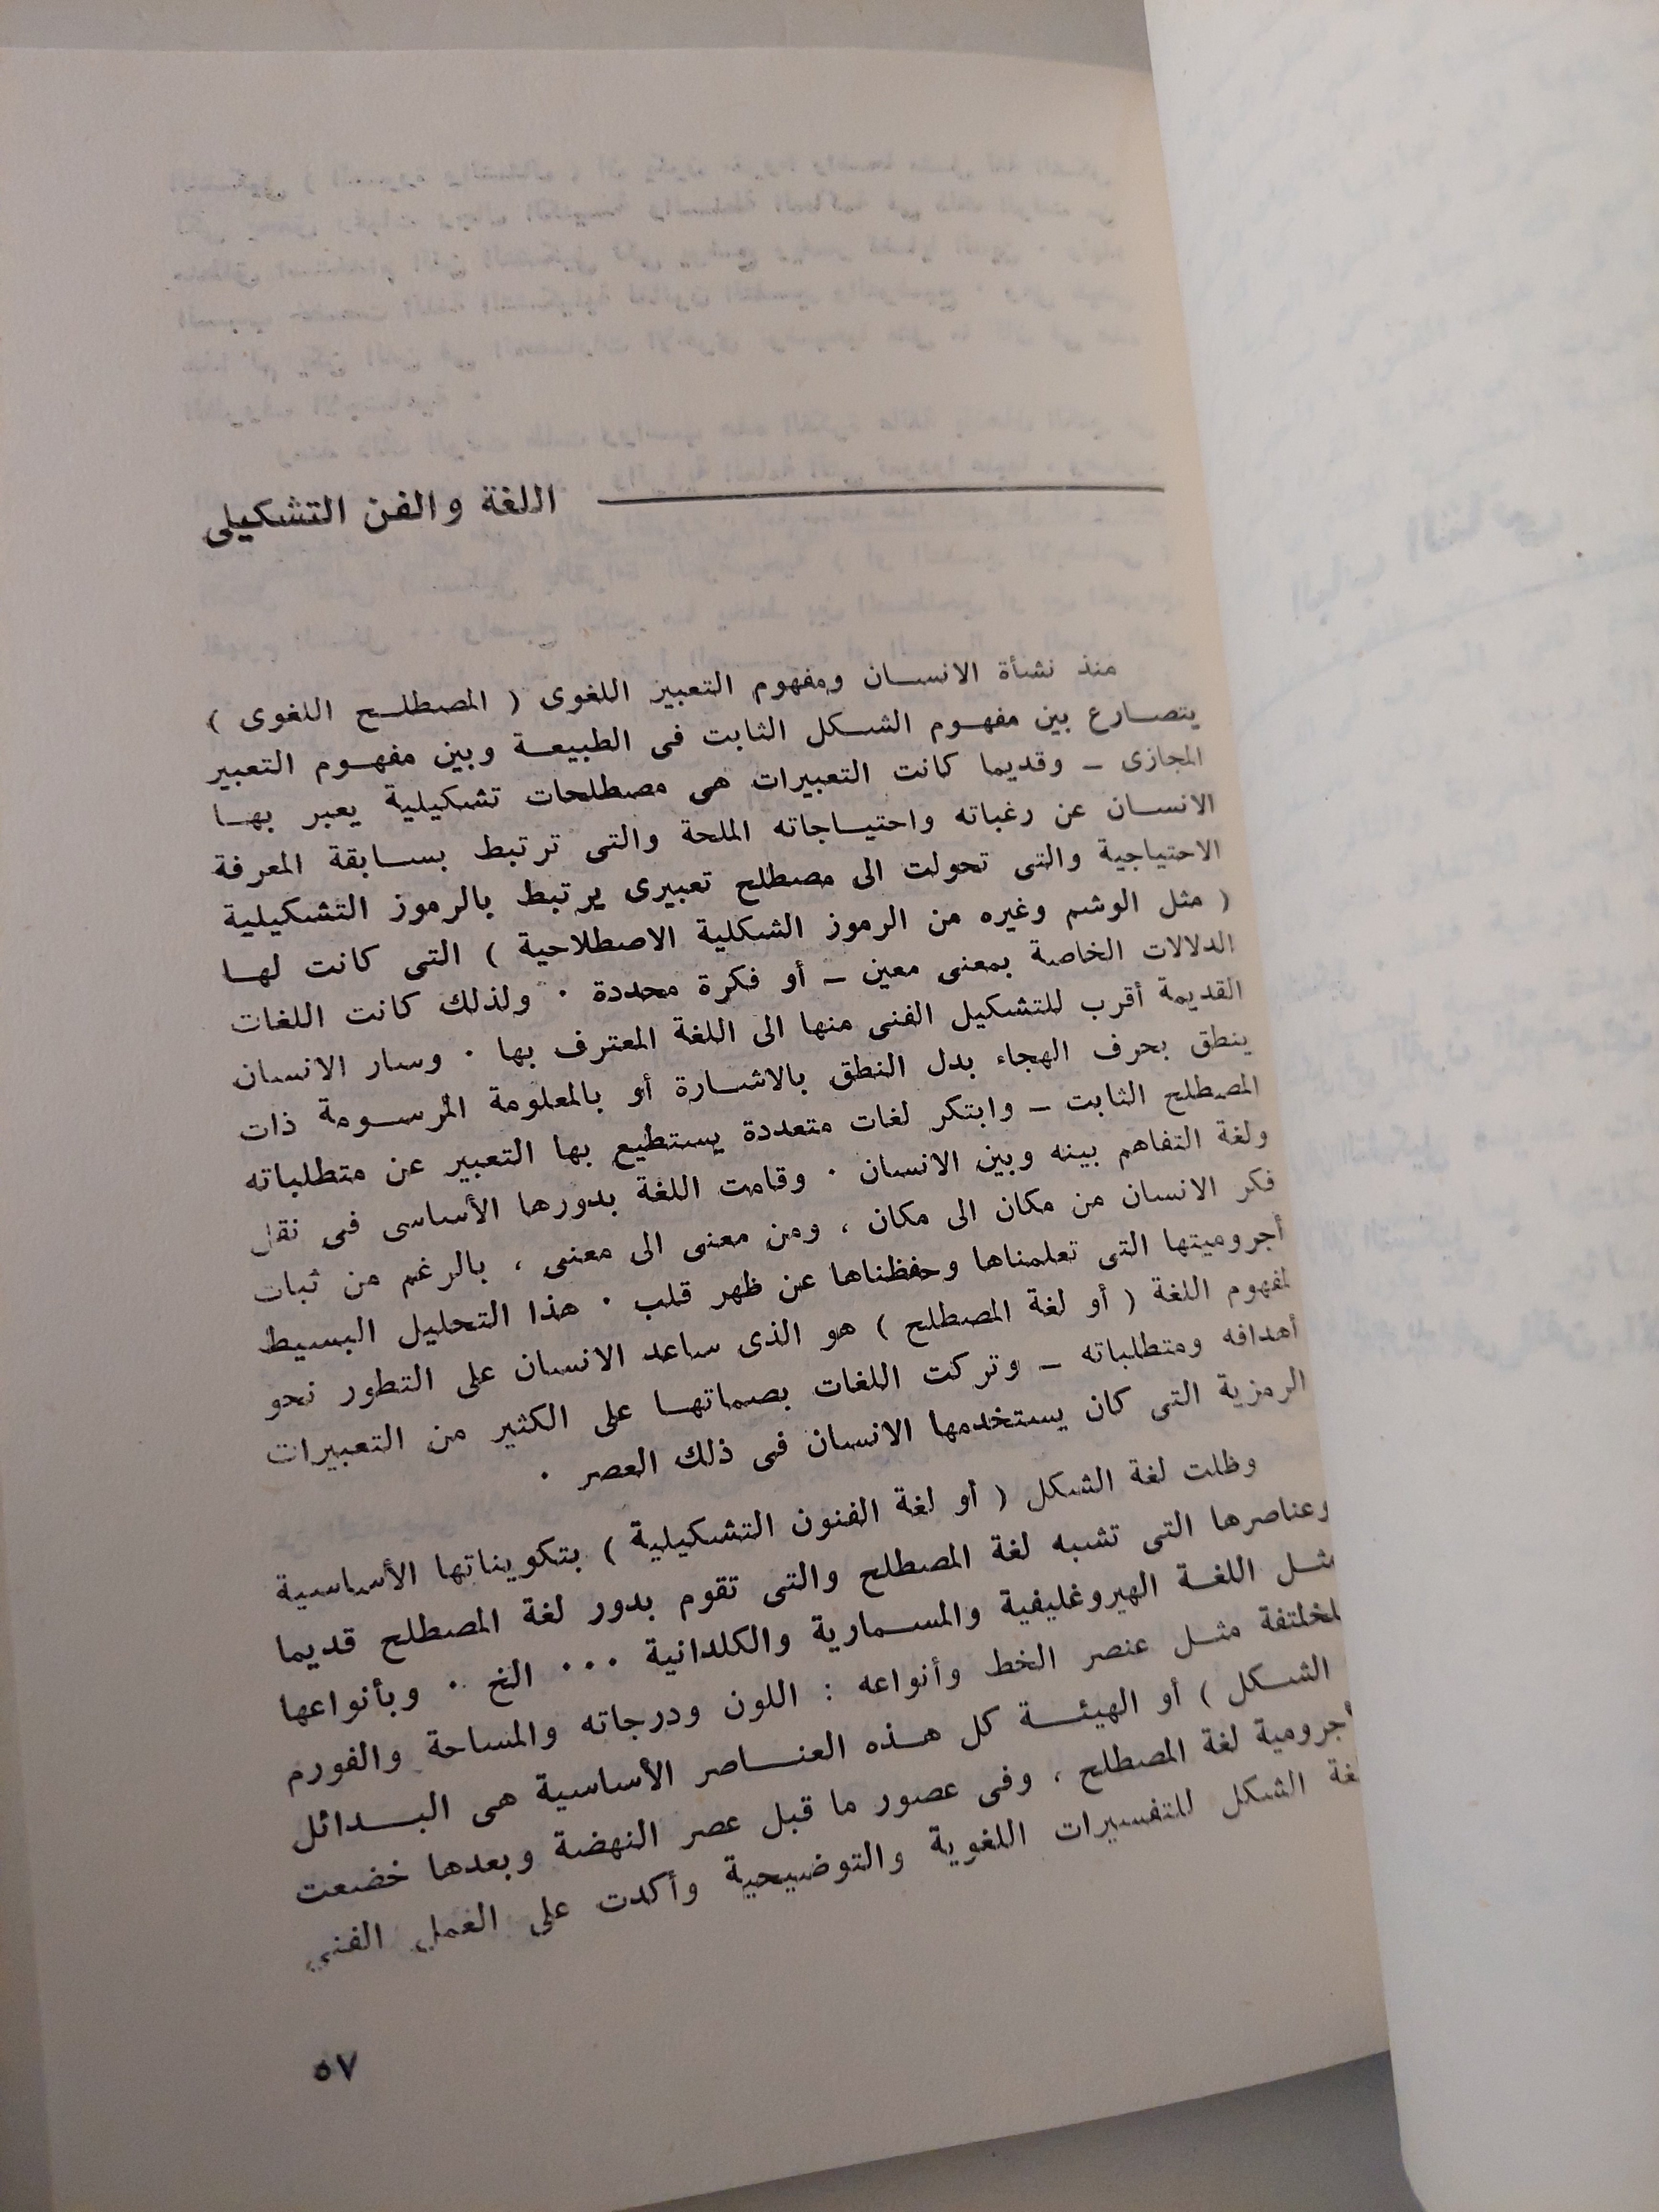 اللغة والفن التشكيلى
منذ نشأة الانسان ومفهوم التعبير اللغوى ( المصطلح اللغوى )
يتصارع بين مفهوم الشكل الثابت فى الطبيعة وبين مفهوم التعبير
المجازى – وقديما كانت التعبيرات هى مصطلحات تشكيلية يعبر بها
الانسان عن رغباته واحتياجاته الملحة والتى ترتبط بسابقة المعرفة
الاحتياجية والتى تحولت الى مصطلح تعبيرى يرتبط بالرموز التشكيلية
( مثل الوشم وغيره من الرموز الشكلية الاصطلاحية ) التى كانت لها
الدلالات الخاصة بمعنى معين – أو فكرة محددة . ولذلك كانت اللغات
القديمة أقرب للتشكيل الفنى منها الى اللغة المعترف بها . وسار الانسان
ينطق بحرف الهجاء بدل النطق بالاشارة أو بالمعلومة المرسومة ذات
المصطلح الثابت – وابتكر لغات متعددة يستطيع بها التعبير عن متطلباته
ولغة التفاهم بينه وبين الانسان . وقامت اللغة بدورها الأساسى فى نقل
فكر الانسان من مكان الى مكان ، ومن معنى الى معنى ، بالرغم من ثبات
أجروميتها التى تعلمناها وحفظناها عن ظهر قلب . هذا التحليل البسيط
لمفهوم اللغة ( أو لغة المصطلح ) هو الذى ساعد الانسان على التطور نحو
أهدافه ومتطلباته – وتركت اللغات بصماتها على الكثير من التعبيرات
الرمزية التى كان يستخدمها الانسان فى ذلك العصر .
وظلت لغة الشكل ( أو لغة الفنون التشكيلية ) بتكويناتها الأساسية
وعناصرها التى تشبه لغة المصطلح والتى تقوم بدور لغة المصطلح قديما
مثل اللغة الهيروغليفية والمسمارية والكلدانية ... الخ . وبأنواعها
المخلتفة مثل عنصر الخط وأنواعه : اللون ودرجاته والمساحة والفورم
الشكل ) أو الهيئة كل هذه العناصر الأساسية هى البدائل
أجرومية لغة المصطلح ، وفى عصور ما قبل عصر النهضة وبعدها خضعت
لغة الشكل للتفسيرات اللغوية والتوضيحية وأكدت على العمل الفنى
٥٧